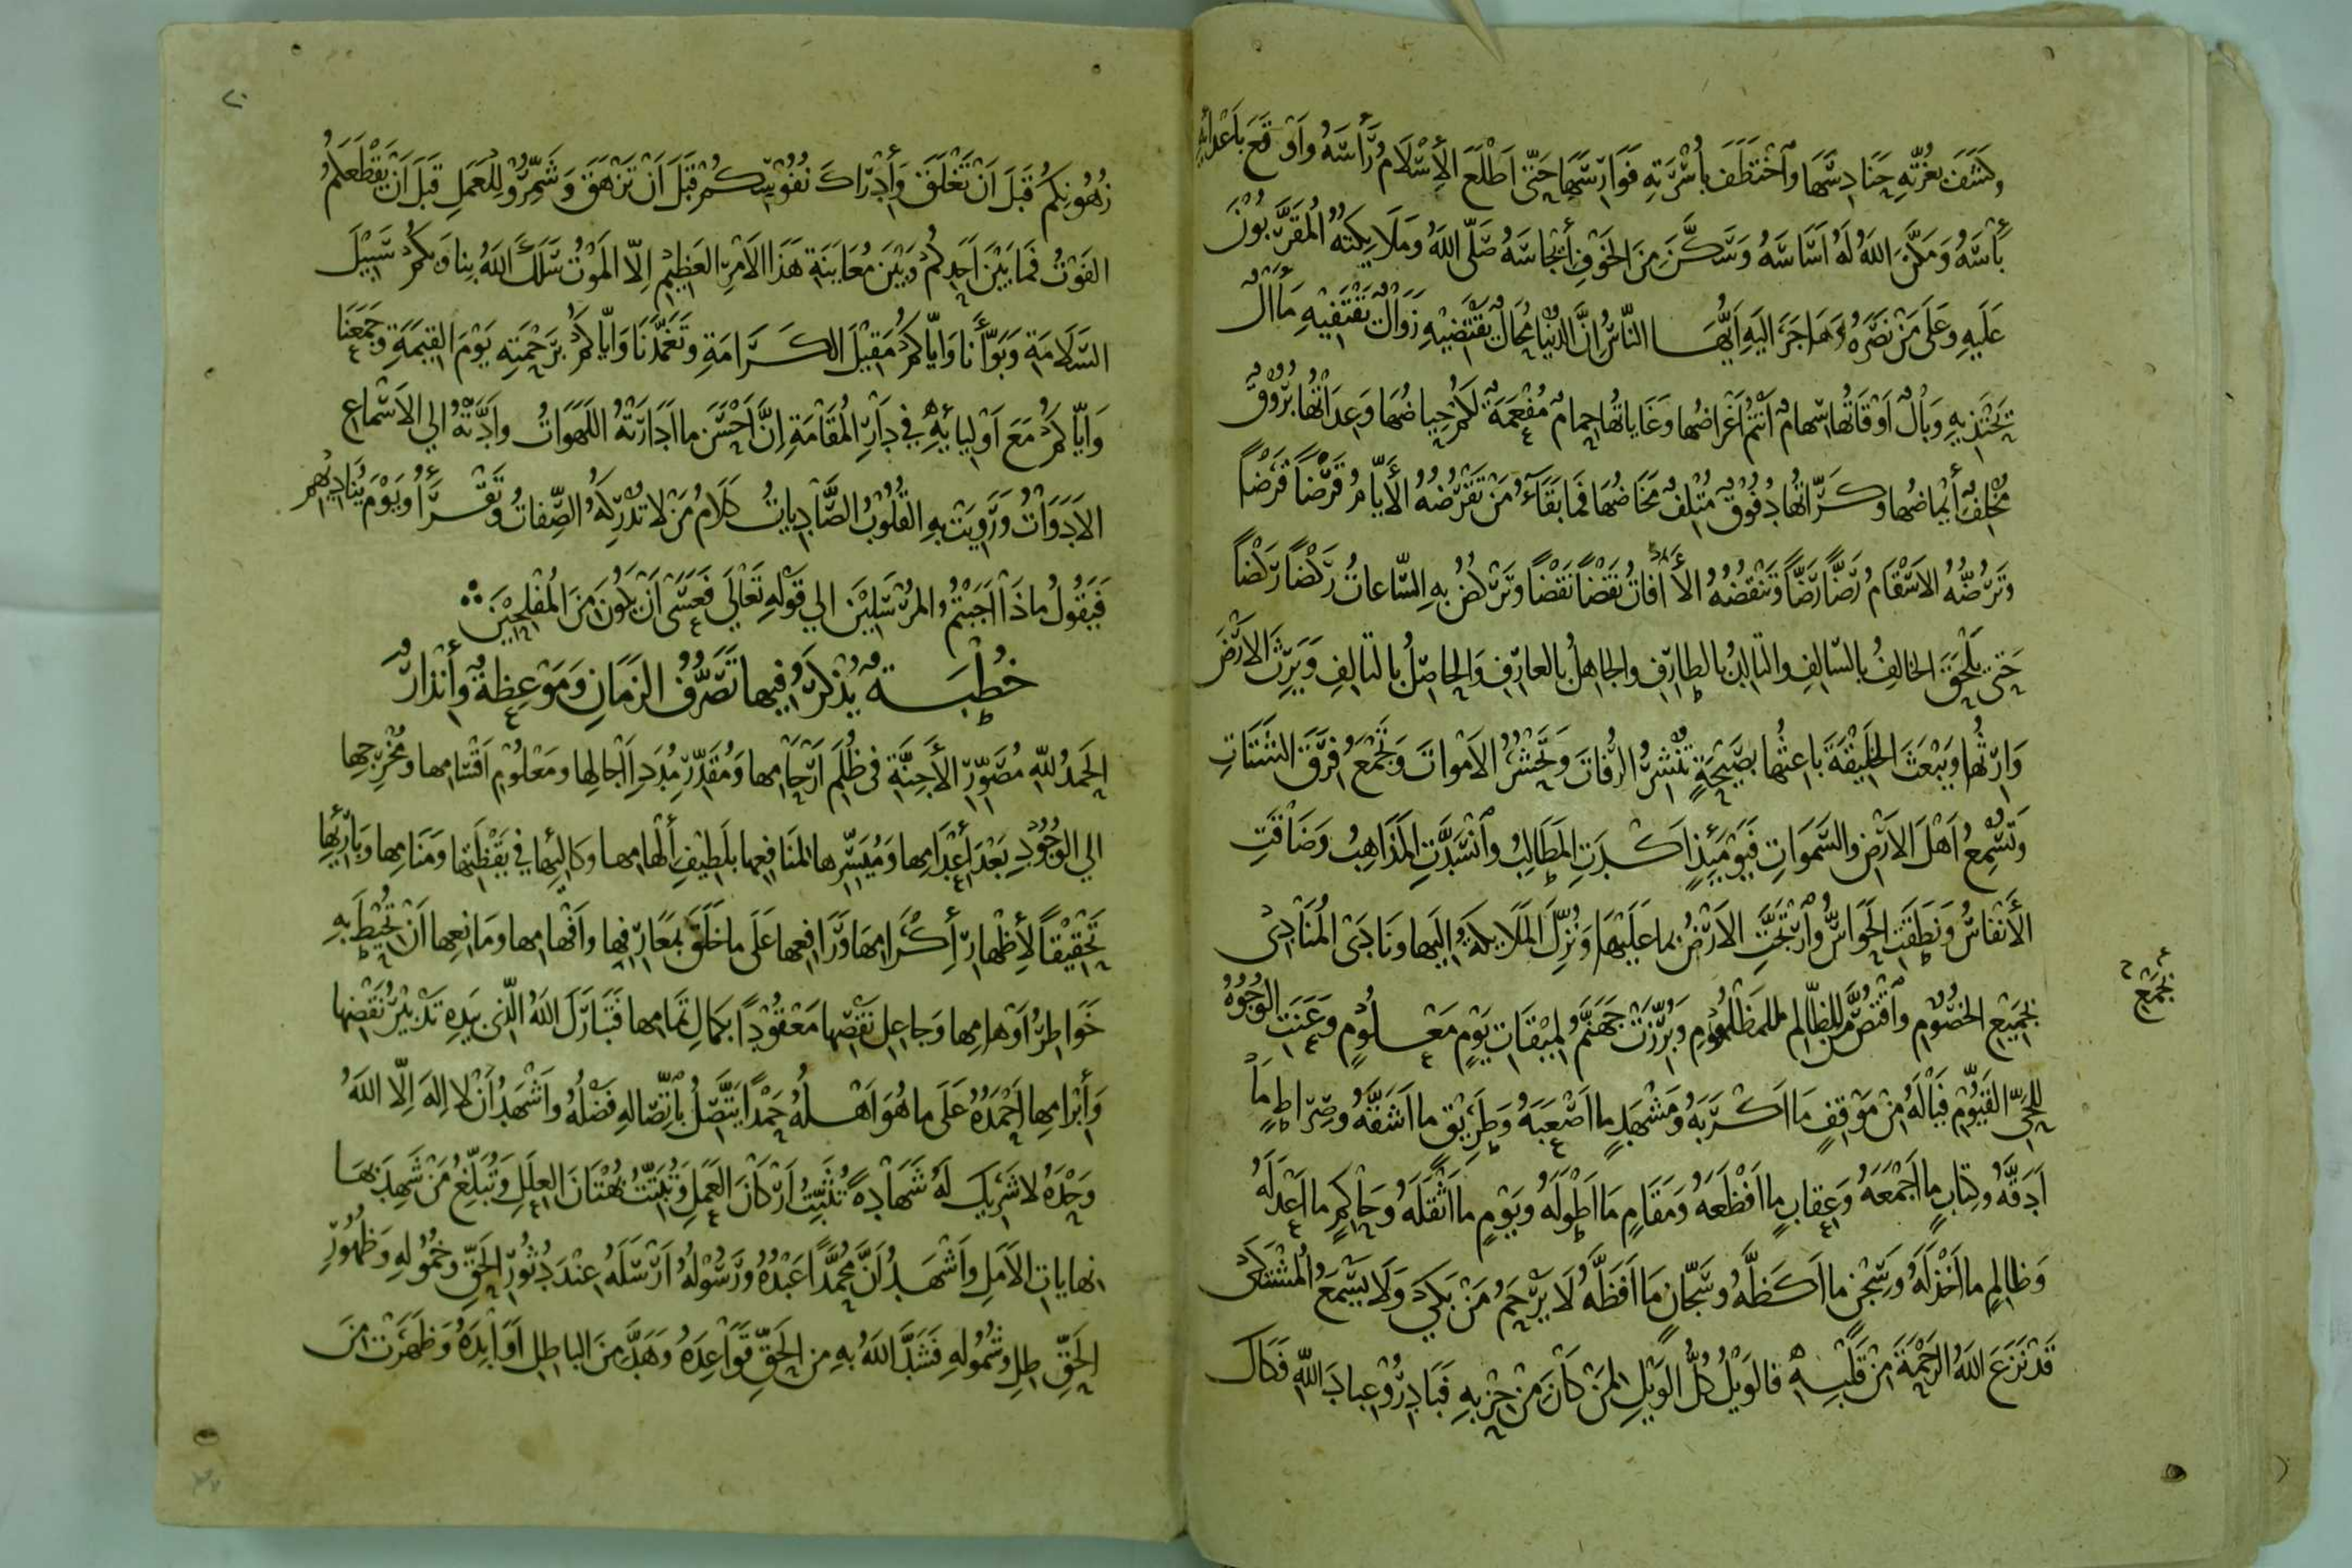 وكشف بغرّته حنادسها واختطف بأسرته فوارسها حتى اطلع الإسلام رأسه واوقع باعدائه
بأسه ومكّن الله له اساسه وسكّن من الخوف أيجاسه صلّى الله وملايكته المقرّبون
عليه وعلى من نصره وهاجر اليه ايّها النّاس انّ الدنيا محالٌ يقتضيه زوالٌ يقتفيه مآلٌ
يحتذيه وبالٌ اوقاتها سهامٌ أنتم أغراضها وغاياتها حمامٌ مفعمةٌ لكم حياضها وعداتها بروقٌ
مخلفٌ أيماضها وكرّاتها دفوقٌ متلفٌ مخاضها فما بقآء من تقرضه الأيّام قرضاً قرضاً
وترضّه الاسقام رضّاً رضّاً وتنقضه الأفات نقضاً نقضاً وتركض به السّاعات ركضاً ركضاً
حتى يلحق الخالف بالسّالف والتالد بالطارف والجاهل بالعارف والحاصل بالتالف ويرث الارض
وارثها ويبعث الخليقة باعثها بصيحةٍ تنشر الرّفات وتحشر الاموات وتجمع فرق الشتات
وتسمع أهل الارض والسّموات فيومئذٍ اكدت المطالب وانسدّت المذاهب وضاقت
الأنفاس ونطقت الحواسّ وارتجّت الارض بما عليها ونزل الملايكة اليها ونادى المنادى
بجميع الخصوم واقتصّ من الظّالم للمظلوم وبرّزت جهنّم لميقات يومٍ معلومٍ وعنت الوجوه
بجمع
للحىّ القيّوم فياله من موقفٍ ما اكربه ومشهدٍ ما اصعبه وطريق ما اشقّه وصراطٍ ما
ادقّه وكتابٍ ما اجمعه وعقابٍ ما افظعه ومقامٍ ما اطوله ويومٍ ما اثقله وحاكمٍ ما اعدله
وظالمٍ ما اخذله وسجن ما اكظّه وسجّانٍ ما افظّه لا يرحم من بكى ولا يسمع المشتكى
قد نزع الله الرحمة من قلبه فالويل كلّ الويل لمن كان من حزبه فبادروا عباد الله فكاك
٢٠
رهونكم قبل ان تغلق وأدراك نفوسكم قبل ان تزهق وشمّروا للعمل قبل ان يقطعكم
الفوت فما بين احدكم وبين معاينة هذا الامر العظيم الّا الموت سلك الله بنا وبكم سبيل
السّلامة وبوّأنا وايّاكم مقيل الكرامة وتغمّدنا وايّاكم برحمته يوم القيمة وجمعنا
وايّاكم مع اوليائه في دار المقامة انّ احسن ما ادارته اللهوات وادّته الي الاسماع
الادوات ورويت به القلوب الصّاديات كلام من لا تدركه الصّفات وتقرأ ويوم يناديهم
فيقول ماذا اجبتم المرسلين الي قوله تعالي فعسى ان يكون من المفلحين
خطبةٌ يذكر فيها تصرّف الزمان وموعظةٌ وأنذارٌ
الحمد لله مصوّر الأجنّة فى ظلم ارحامها ومقدّر مدد اجالها ومعلوم اقسامها ومخرجها
الي الوجود بعد اعدامها وميسّرها لمنافعها بلطيف ألهامها وكالئها في يقظتها ومنامها وبارئها
تحقيقاً لأظهار أكرامها ورافعها على ما خلق بمعارفها وافهامها ومانعها ان تحيط به
خواطر اوهامها وجاعل نقصها معقوداً بكمال تمامها فتبارك الله الّذى بيده تدبير نقضها
وأبرامها احمده على ما هو اهله حمداً يتّصل باتّصاله فضله واشهد ان لا اله الّا الله
وحده لا شريك له شهادةً تثبّت اركان العمل وتبتّت بهتان العلل وتبلّغ من شهد بها
نهايات الأمل واشهد انّ محمّداً عبده ورسوله ارسله عند دثور الحقّ وخموله وظهور
الحقّ طل وشموله فشدّ الله به من الحقّ قواعده وهدّ من الباطل اوابده وظهرت من